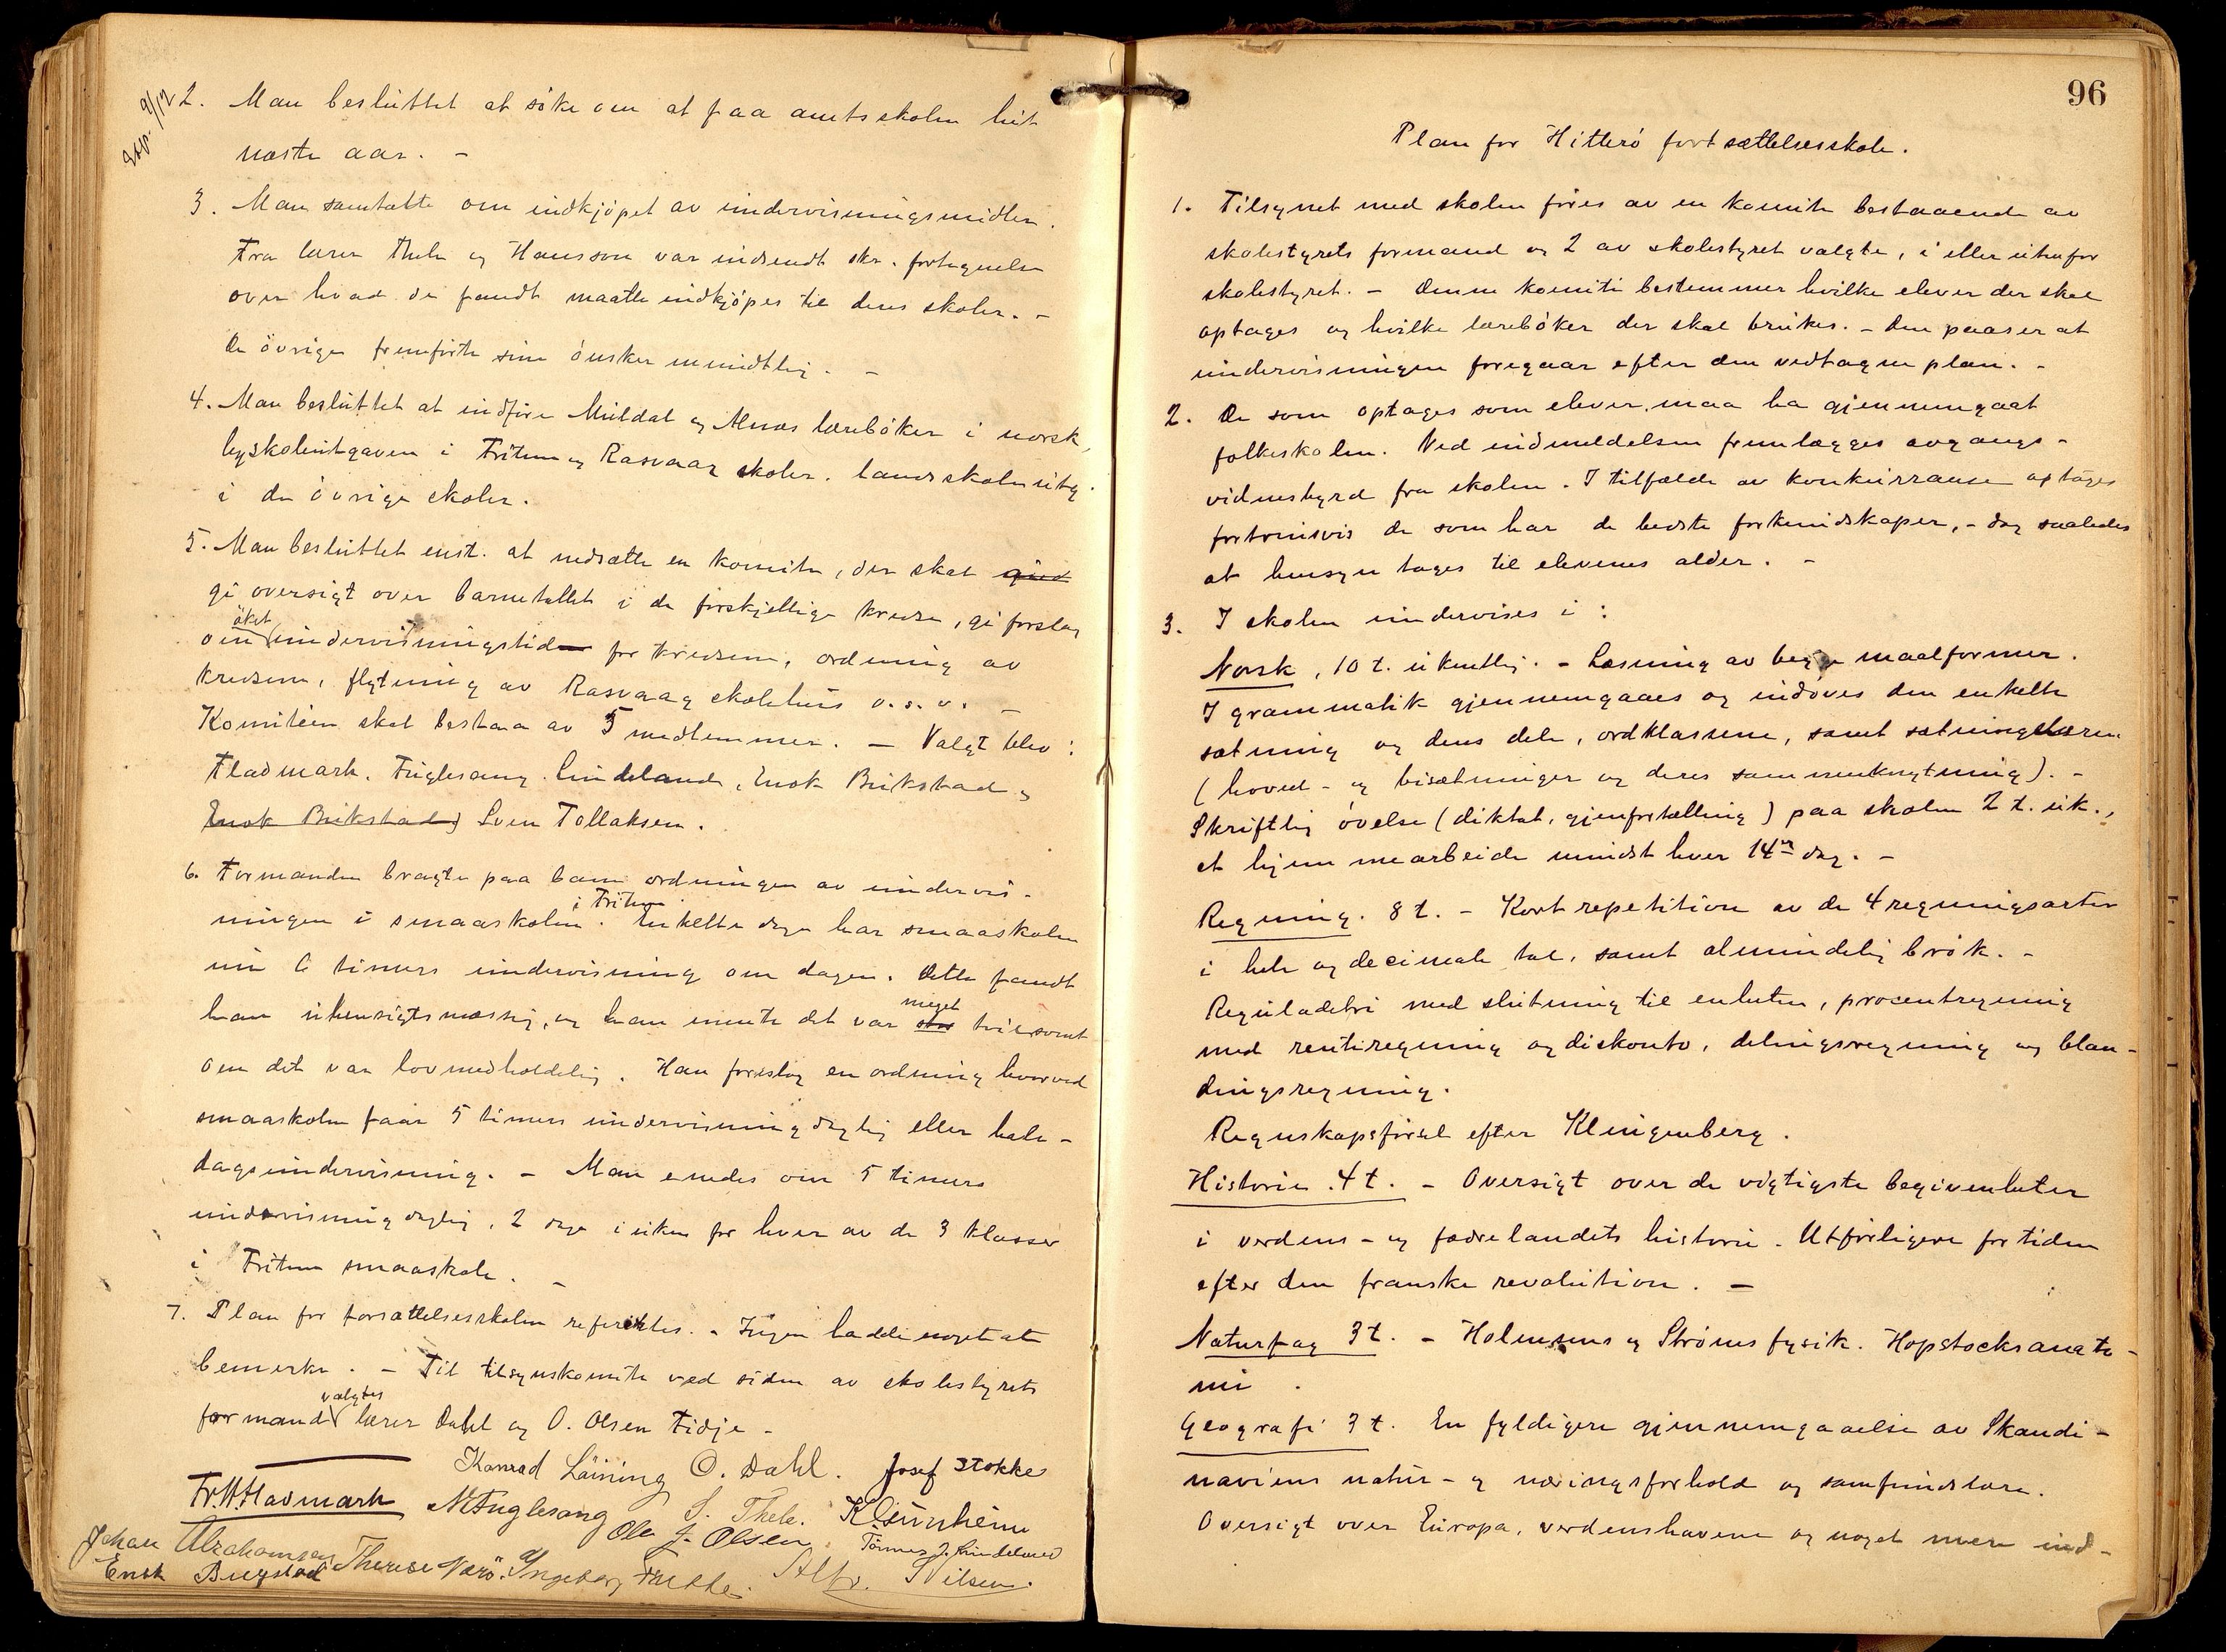 9/12
2. Man besluttet at søke om at faa amtsskolen hit
næste aar. -
3. Man samtalte om indkjøpet av undervisningsmidler.
Fra lærer Thele og Hansson var indsendt skr. fortegnelse
over hvad de fandt maatte indkjøpes til deres skoler. -
De øvrige fremførte sine ønsker mundtlig. -
4. Man besluttet at indføre Muldal og Alnæs lærebøker i norsk,
byskoleutgaven i Fritun og Rasvaag skoler. Landsskoleutg.
i de øvrige skoler.
5. Man besluttet enst. at nedsætte en komite, der skal
gi oversigt over barnetallet i de forskjellige kredse, gi forslag
om øket undervisningstid for kredsene, ordning av
kredsene, flytning av Rasvaag skolehus o.s.v. -
Komiteen skal bestaa av 5 medlemmer. - Valgt blev:
Fladmark. Fuglesang. Lindeland, Enok Brikstad og
Enok Brikstad, Sven Tollaksen.
6. Formanden bragte paa bane ordningen av undervis-
ningen i smaaskolen i Fritun. Enkelte dage har smaaskolen
nu 6 timers undervisning om dagen. Dette fandt
han uhensigtsmæssig, og han mente det var meget tvilsomt
om det var lovmedholdelig. Han foreslog en ordning hvorved
smaaskolen faar 5 timers undervisning daglig eller hele-
dagsundervisning. - Man enedes om 5 timers
undervisning daglig, 2 dage i uken for hver av de 3 klasser
i Fritun smaaskole. -
7. Plan for forsættelsesskolen refertes. - Ingen hadde noget at
bemerke. - Til tilsynskomite ved siden av skolestyrets
formand valgtes lærer Dahl og O. Olsen Tidje -
Konrad Løining O. Dahl. Josef Stokke
Fr. W. Fladmark N. Fuglesang S. Thele. K. Leirvheim
Johan Abrahamsen Ole J. Olsen Tønnes J. Lindeland
Enok Bregstad Therese Værø. Ingeborg Alfr. Nilsen.
96
Plan for Hitterø fortsættelsesskole.
1. Tilsynet med skolen føres av en komite bestaaende av
skolestyrets formand og 2 av skolestyret valgte, i eller utenfor
skolestyret. - Denne komite bestemmer hvilke elever der skal
optages og hvilke lærebøker der skal brukes. - Den paaser at
undervisningen foregaar efter den vedtagne plan. -
2. De som optages som elever, maa ha gjennemgaat
folkeskolen. Ved indmeldelsen fremlægges avgangs-
vidnesbyrd fra skolen. I tilfælde av konkurranse optages
fortrinsvis de som har de bedste forkundskaper, - dog saaledes
at hensyn tages til elevenes alder. -
3. I skolen undervises i:
Norsk, 10 t. ukentlig. - Læsning av begge maalformer.
I grammatik gjennemgaaes og indøves den enkelte
sætning og dens dele, ordklassene, samt sætningslæren
(hoved- og bisætninger og deres sammenknytning). -
Skriftlig øvelse (diktat, gjenfortælling) paa skolen 2 t. uk.,
et hjemmearbeide mindst hver 14de dag. -
Regning. 8 t. - Kort repetition av de 4 regningsarter
i hele og decimale tal, samt almindelig brøk. -
Reguladetri med slutning til enheten, procentregning
med renteregning og diskonto, delingsregning og blan-
dingsregning.
Regnskapsførsel efter Klingenberg.
Historie. 4 t. - Oversigt over de vigtigste begivenheter
i verdens- og fædrelandets historie. Utførligere for tiden
efter den franske revolution. -
Naturfag 3 t. - Holmsens og Strøms fysik. Hopstocks anato-
mi.
Geografi 3 t. En fyldigere gjennemgaaelse av Skandi-
naviens natur- og næringsforhold og samfundslære.
Oversigt over Europa, verdenshavene og noget mere ind-